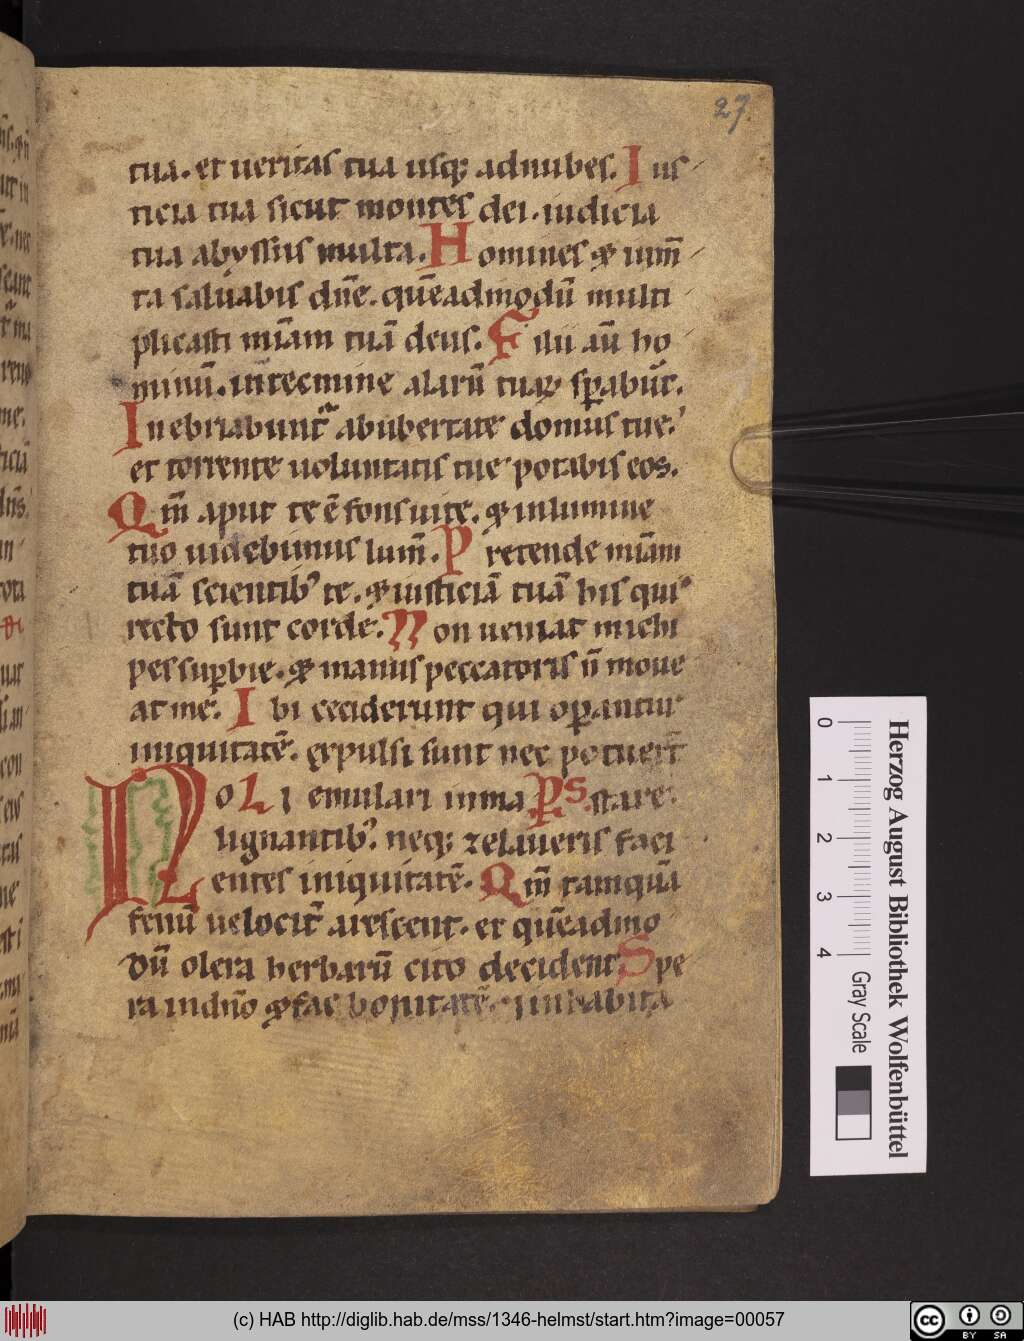 27.
tua. et ueritas tua usq; ad nubes. Ius
ticia tua sicut montes dei. iudicia
tua abyssus multa. Homines & ium̄
ta saluabis dn̄e. quēadmodū multi
plicasti mīam tuā deus. Filii aū ho
minū. in tecmine alarū tuaꝝ sp̄abūt.
Inebriabunt᷑ ab ubertate domus tue.
et torrente uoluntatis tue potabis eos.
Qm̄ aput te ē fons uite. & in lumine
tuo uidebimus lum̄. Pretende mīam
tuā scientibꝰ te. & iusticiā tuā his qui
recto sunt corde. Non ueniat michi
pes sup̄bie. & manus peccatoris n̄ moue
at me. Ibi ceciderunt qui op̄antur
iniquitatē. expulsi sunt nec potuer̄t
NOLI emulari in ma PS stare.
lignantibꝰ. neq; zelaueris faci
entes iniquitatē. Qm̄ tamquā
fenū uelocit᷑ arescent. et quēadmo
dū olera herbarū cito decident. Spe
ra in dn̄o & fac bonitatē. & inhabita
0 1 2 3 4
Gray Scale
Herzog August Bibliothek Wolfenbüttel
(c) HAB http://diglib.hab.de/mss/1346-helmst/start.htm?image=00057
cc BY SA